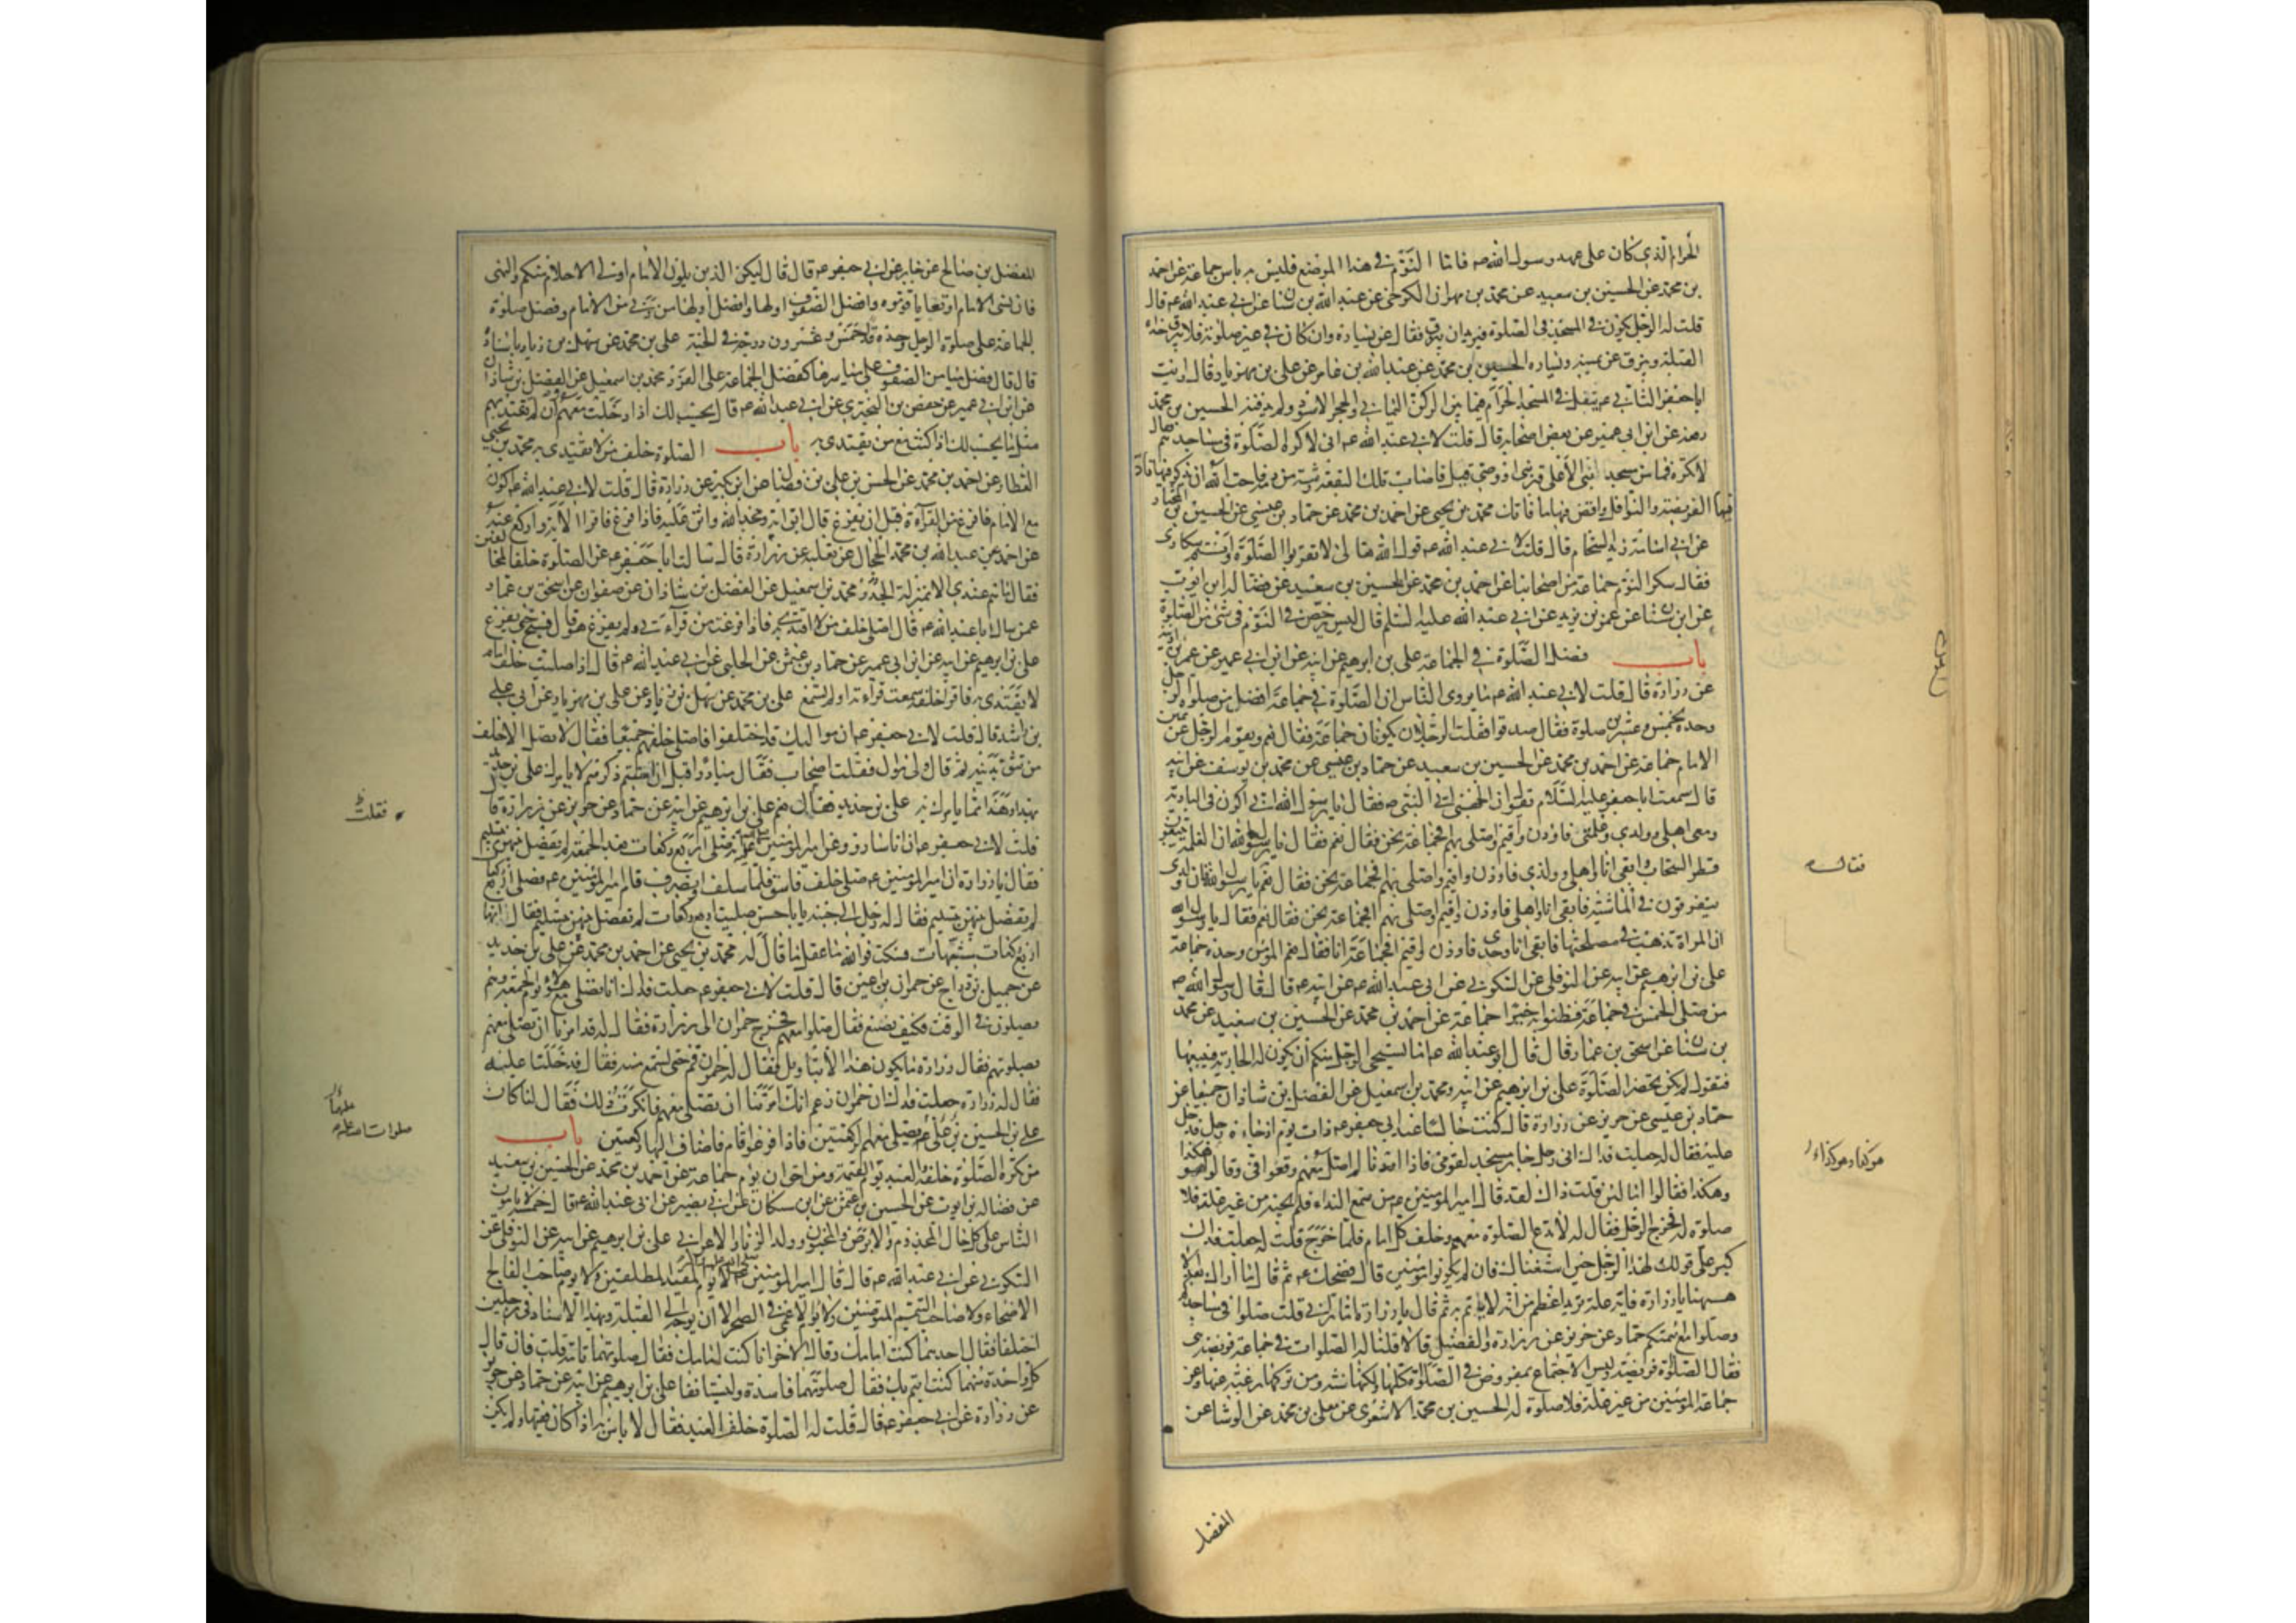 الحرام الذي كان على عهد رسول الله ص فاما النوم في هذا الموضع فليس به باس جماعة عن احمد
بن محمد عن الحسين بن سعيد عن محمد بن مهران الكرخي عن عبد الله بن سنان عن ابي عبد الله ع قال
قلت له الرجل يكون في المسجد في الصلوة فيريد ان يبزق فقال عن يساره وان كان في غير صلوة فلا يبزق حذاء
القبلة ويبزق عن يمينه ويساره الحسين بن محمد عن عبد الله بن عامر عن علي بن مهزيار قال رايت
ابا جعفر الثاني ع يتفل في المسجد الحرام فيما بين الركن اليماني والحجر الاسود ولم يدفنه الحسين بن محمد
رفعه عن ابن ابي عمير عن بعض اصحابه قال قلت لابي عبد الله ع اني لاكره الصلوة في مساجدهم فقال
لا تكره فما من مسجد بني الا على قبر نبي او وصي نبي قتل فاصاب تلك البقعة رشة من دمه فاحب الله ان يذكر فيها فاد
فيها الفريضة والنوافل واقض فيها ما فاتك محمد بن يحيى عن احمد بن محمد عن حماد بن عيسى عن الحسين بن المختار
عن ابي اسامة زيد الشحام قال قلت لابي عبد الله ع قول الله تعالى لا تقربوا الصلوة وانتم سكارى
فقال سكر النوم جماعة من اصحابنا عن احمد بن محمد عن الحسين بن سعيد عن فضالة بن ايوب
عن ابن سنان عن عمر بن يزيد عن ابي عبد الله عليه السلم قال ليس يرخص في النوم في شئ من الصلوة
باب فضل الصلوة في الجماعة علي بن ابرهيم عن ابيه عن ابن ابي عمير عن عمر بن اذينة
عن زرارة قال قلت لابي عبد الله ع ما يروي الناس ان الصلوة في جماعة افضل من صلوة الرجل
وحده بخمس وعشرين صلوة فقال صدقوا فقلت الرجلان يكونان جماعة فقال نعم ويقوم الرجل عن يمين
الامام جماعة عن احمد بن محمد عن الحسين بن سعيد عن حماد بن عيسى عن محمد بن يوسف عن ابيه
قال سمعت ابا جعفر عليه السلام يقول ان الجهني اتى النبي ص فقال يا رسول الله اني اكون في البادية
ومعي اهلي وولدي وغلمتي فاوذن واقيم واصلي بهم افجماعة نحن فقال نعم فقال يا رسول الله ان الغلمة يتبعون
قطر السحاب وابقى انا واهلي وولدي فاوذن واقيم واصلي بهم افجماعة نحن فقال نعم يا رسول الله فان ولدي
يتفرقون في الماشية فابقى انا واهلي فاوذن واقيم واصلي بهم افجماعة نحن فقال نعم فقال يا رسول الله
ان المراة تذهب في مصلحتها فابقى انا وحدي فاوذن واقيم افجماعة انا فقال نعم المؤمن وحده جماعة
علي بن ابرهيم عن ابيه عن النوفلي عن السكوني عن ابي عبد الله ع عن ابيه ع قال قال رسول الله ص
من صلى الخمس في جماعة فظنوا به خيرا جماعة عن احمد بن محمد عن الحسين بن سعيد عن محمد
بن سنان عن اسحق بن عمار قال قال ابو عبد الله ع اما يستحيي الرجل منكم ان يكون له الجارية فيبيعها
فتقول لم يكن يحضر الصلوة علي بن ابرهيم عن ابيه ومحمد بن اسمعيل عن الفضل بن شاذان جميعا عن
حماد بن عيسى عن حريز عن زرارة قال كنت جالسا عند ابي جعفر ع ذات يوم اذ جاءه رجل فدخل
عليه فقال له جعلت فداك اني رجل جار مسجد لقومي فاذا انا لم اصل معهم وقعوا في وقالوا هو هكذا
وهكذا فقال اما لئن قلت ذاك لقد قال امير المؤمنين ع من سمع النداء فلم يجبه من غير علة فلا
صلوة له فخرج الرجل فقال له لا تدع الصلوة معهم وخلف كل امام فلما خرج قلت له جعلت فداك
كبر علي قولك لهذا الرجل حين استفتاك فان لم يكونوا مؤمنين قال فضحك ع ثم قال ما اراك بعد الا
هيهنا يا زرارة فاية علة تريد اعظم من انه لا ياتم به ثم قال يا زرارة ما تراني قلت صلوا في مساجدكم
وصلوا مع ائمتكم حماد عن حريز عن زرارة والفضيل قالا قلنا له الصلوات في جماعة فريضة هي
فقال الصلوة فريضة وليس الاجتماع بمفروض في الصلوة كلها ولكنها سنة ومن تركها رغبة عنها وعن
جماعة المؤمنين من غير علة فلا صلوة له الحسين بن محمد الاشعري عن معلى بن محمد عن الوشا عن
فقال له
هو كذا وهو كذا
المفضل
المفضل بن صالح عن جابر عن ابي جعفر ع قال قال ليكن الذين يلون الامام اولي الاحلام منكم والنهى
فان نسي الامام او تعايا قوموه وافضل الصفوف اولها وافضل اولها ما دنى من الامام وفضل صلوة
الجماعة على صلوة الرجل وحده خمس وعشرون درجة في الجنة علي بن محمد عن سهل بن زياد باسناده
قال قال فضل ميامن الصفوف على مياسرها كفضل الجماعة على الفرد محمد بن اسمعيل عن الفضل بن شاذان
عن ابن ابي عمير عن حفص بن البختري عن ابي عبد الله ع قال يحسب لك اذا دخلت معهم وان لم تقتد بهم
مثل ما يحسب لك اذا كنت مع من يقتدى به باب الصلوة خلف من لا يقتدى به محمد بن يحيى
العطار عن احمد بن محمد عن الحسن بن علي بن فضال عن ابن بكير عن زرارة قال قلت لابي عبد الله ع اكون
مع الامام فافرغ من القراءة قبل ان يفرغ قال ابق اية ومجد الله واثن عليه فاذا فرغ فاقرا الاية واركع عنه
عن احمد عن عبد الله بن محمد الحجال عن ثعلبة عن زرارة قال سالت ابا جعفر ع عن الصلوة خلف المخالفين
فقال ما هم عندي الا بمنزلة الجدر محمد بن اسمعيل عن الفضل بن شاذان عن صفوان عن اسحق بن عمار
عمن سال ابا عبد الله ع قال اصلي خلف من لا اقتدي به فاذا فرغت من قراءتي ولم يفرغ هو قال فسبح حتى يفرغ
علي بن ابرهيم عن ابيه عن ابن ابي عمير عن حماد بن عثمن عن الحلبي عن ابي عبد الله ع قال اذا صليت خلف امام
لا يقتدى به فاقرا خلفه سمعت قراءته او لم تسمع علي بن محمد عن سهل بن زياد عن علي بن مهزيار عن ابي علي
بن راشد قال قلت لابي جعفر ع ان مواليك قد اختلفوا فاصلي خلفهم جميعا فقال لا تصل الا خلف
من تثق بدينه ثم قال ولي موال فقلت اصحاب فقال مبادرا قبل ان استتم ذكرهم لا يامرك علي بن حديد
بهذا وهذا مما يامرك به علي بن حديد فقال نعم علي بن ابرهيم عن ابيه عن حماد عن حريز عن زرارة قا
قلت لابي جعفر ع ان اناسا رووا عن امير المؤمنين ع انه صلى اربع ركعات بعد الجمعة لم يفصل بينهن بتسليم
فقال يا زرارة ان امير المؤمنين ع صلى خلف فاسق فلما سلم وانصرف قام امير المؤمنين ع فصلى اربع ركعات
لم يفصل بينهن بتسليم فقال له رجل الى جنبه يا با حسن صليت اربع ركعات لم تفصل بينهن بتسليم فقال انها
اربع ركعات مشبهات فسكت فوالله ما عقل ما قال له محمد بن يحيى عن احمد بن محمد عن علي بن حديد
عن جميل بن دراج عن حمران بن اعين قال قلت لابي جعفر ع جعلت فداك انا نصلي مع هؤلاء يوم الجمعة وهم
يصلون في الوقت فكيف نصنع فقال صلوا معهم فخرج حمران الى زرارة فقال له قد امرنا ان نصلي معهم
بصلوتهم فقال زرارة ما يكون هذا الا بتاويل فقال له حمران قم حتى نسمع منه فقال فدخلنا عليه
فقال له زرارة جعلت فداك ان حمران زعم انك امرتنا ان نصلي معهم فانكرت ذلك فقال لنا كان
علي بن الحسين بن علي ع يصلي معهم الركعتين فاذا فرغوا قام فاضاف اليها ركعتين باب
من تكره الصلوة خلفه والعبد يؤم القوم ومن احق ان يؤم جماعة عن احمد بن محمد عن الحسين بن سعيد
عن فضالة بن ايوب عن الحسين بن عثمن عن ابن مسكان عن ابي بصير عن ابي عبد الله ع قال خمسة لا يؤمون
الناس على كل حال المجذوم والابرص والمجنون وولد الزنا والاعرابي علي بن ابرهيم عن ابيه عن النوفلي عن
السكوني عن ابي عبد الله ع قال قال امير المؤمنين ع لا يؤم المقيد المطلقين ولا يؤم صاحب الفالج
الاصحاء ولا صاحب التيمم المتوضئين ولا يؤم الاعمى في الصحراء الا ان يوجه الى القبلة وبهذا الاسناد في رجلين
اختلفا فقال احدهما كنت امامك وقال الاخر انا كنت امامك فقال صلوتهما تامة قلت فان قال
كل واحد منهما كنت ائتم بك فقال صلوتهما فاسدة وليستانفا علي بن ابرهيم عن ابيه عن حماد عن حريز
عن زرارة عن ابي جعفر ع قال قلت له الصلوة خلف العبد فقال لا باس به اذا كان فقيها ولم يكن
فقلت
صلوات الله عليه